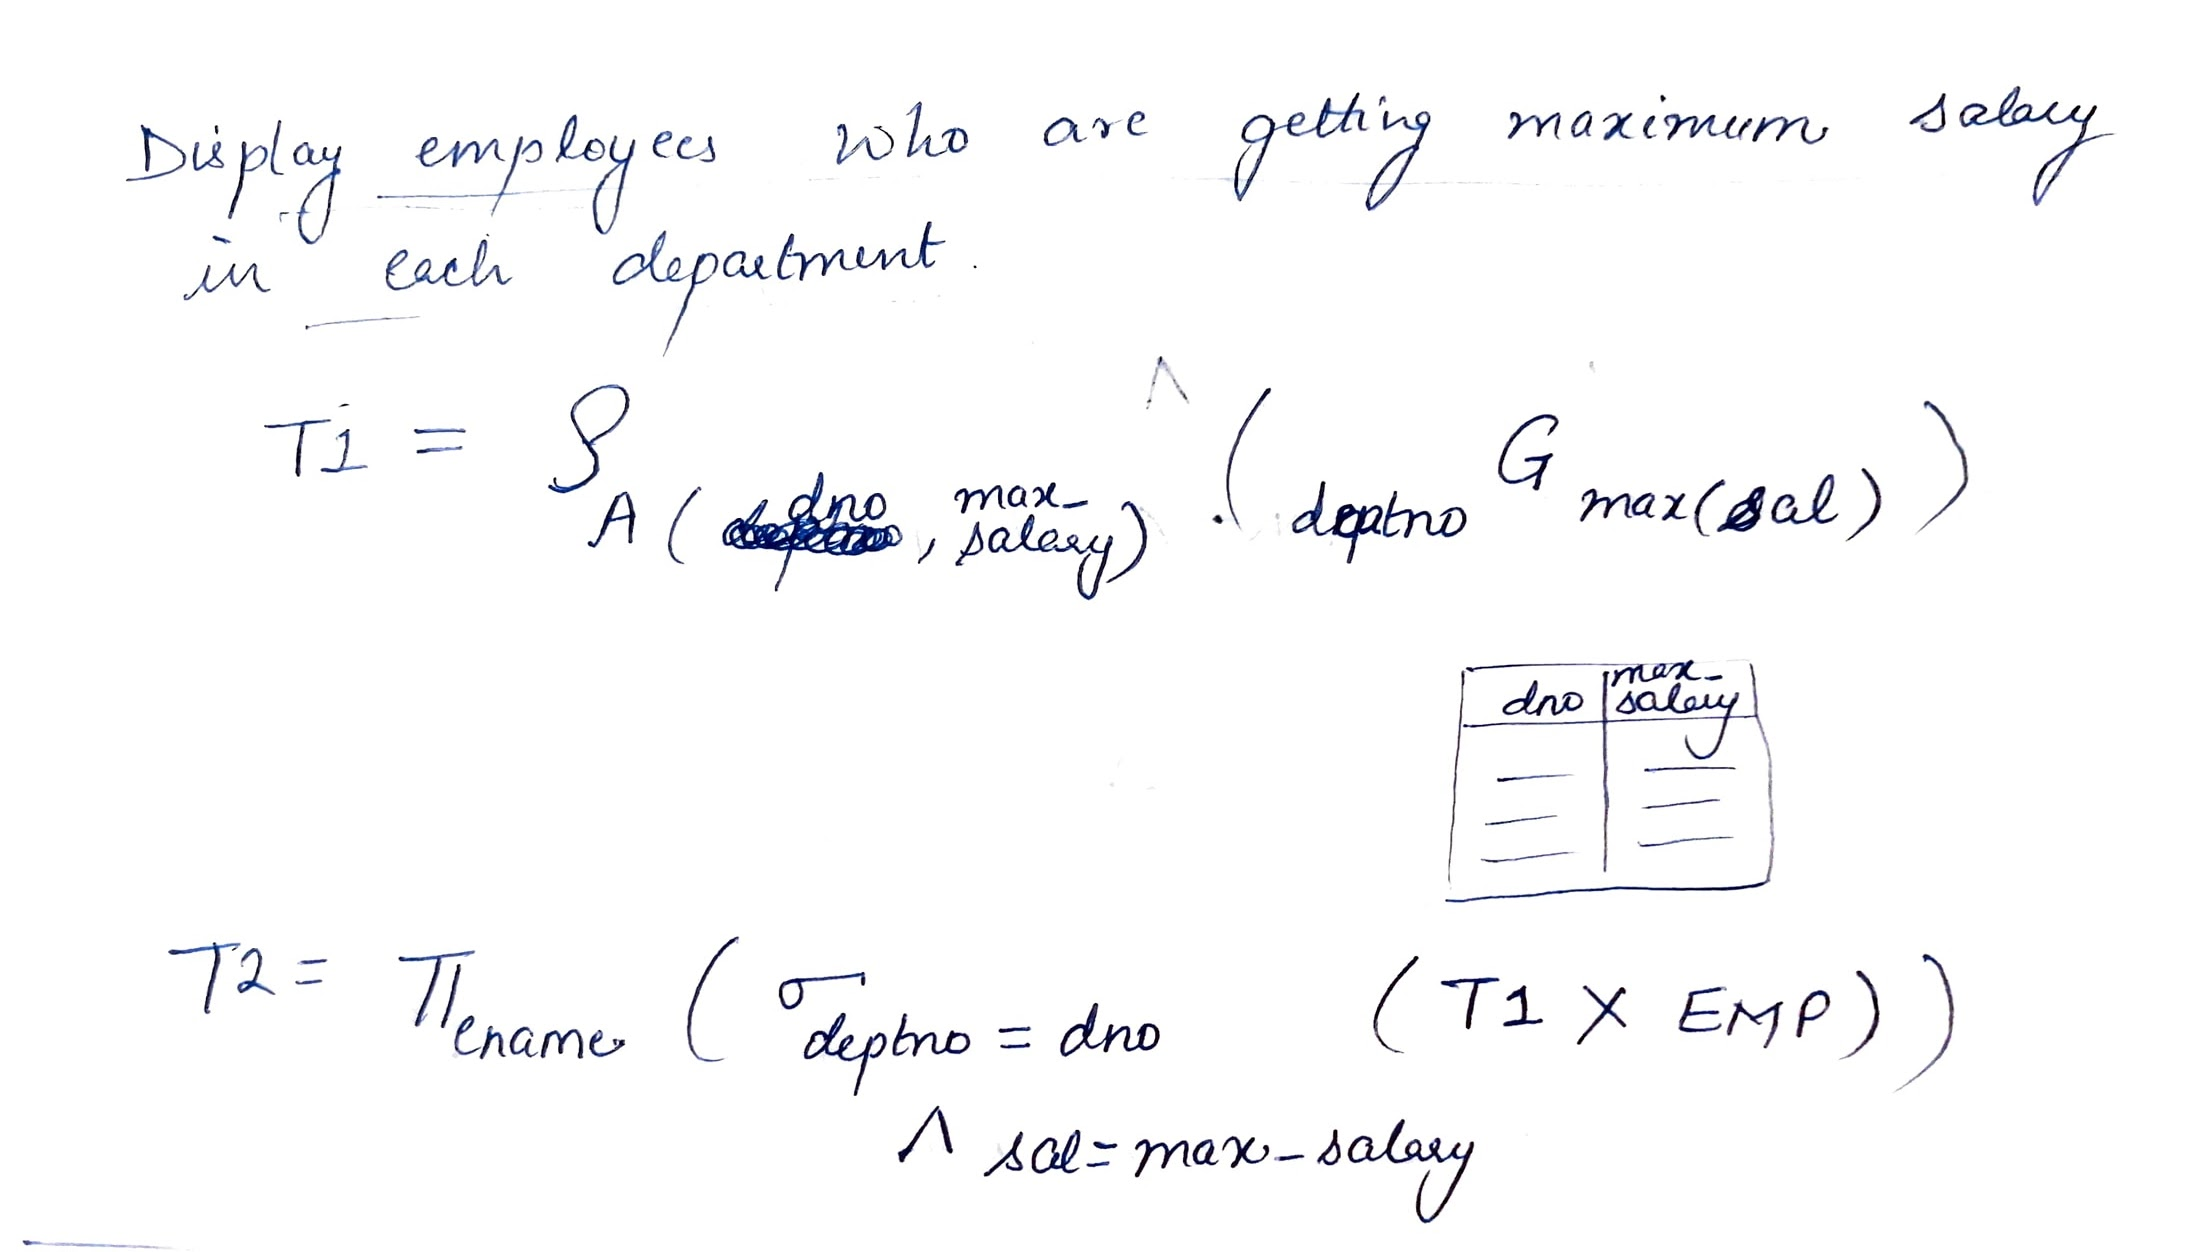 Display employees who are getting maximum salary
in each department.
T1 = ρ A(dno, max_salary) (deptno G max(sal))
dno max_salary
T2 = π ename (σ deptno = dno (T1 X EMP))
∧ sal = max_salary